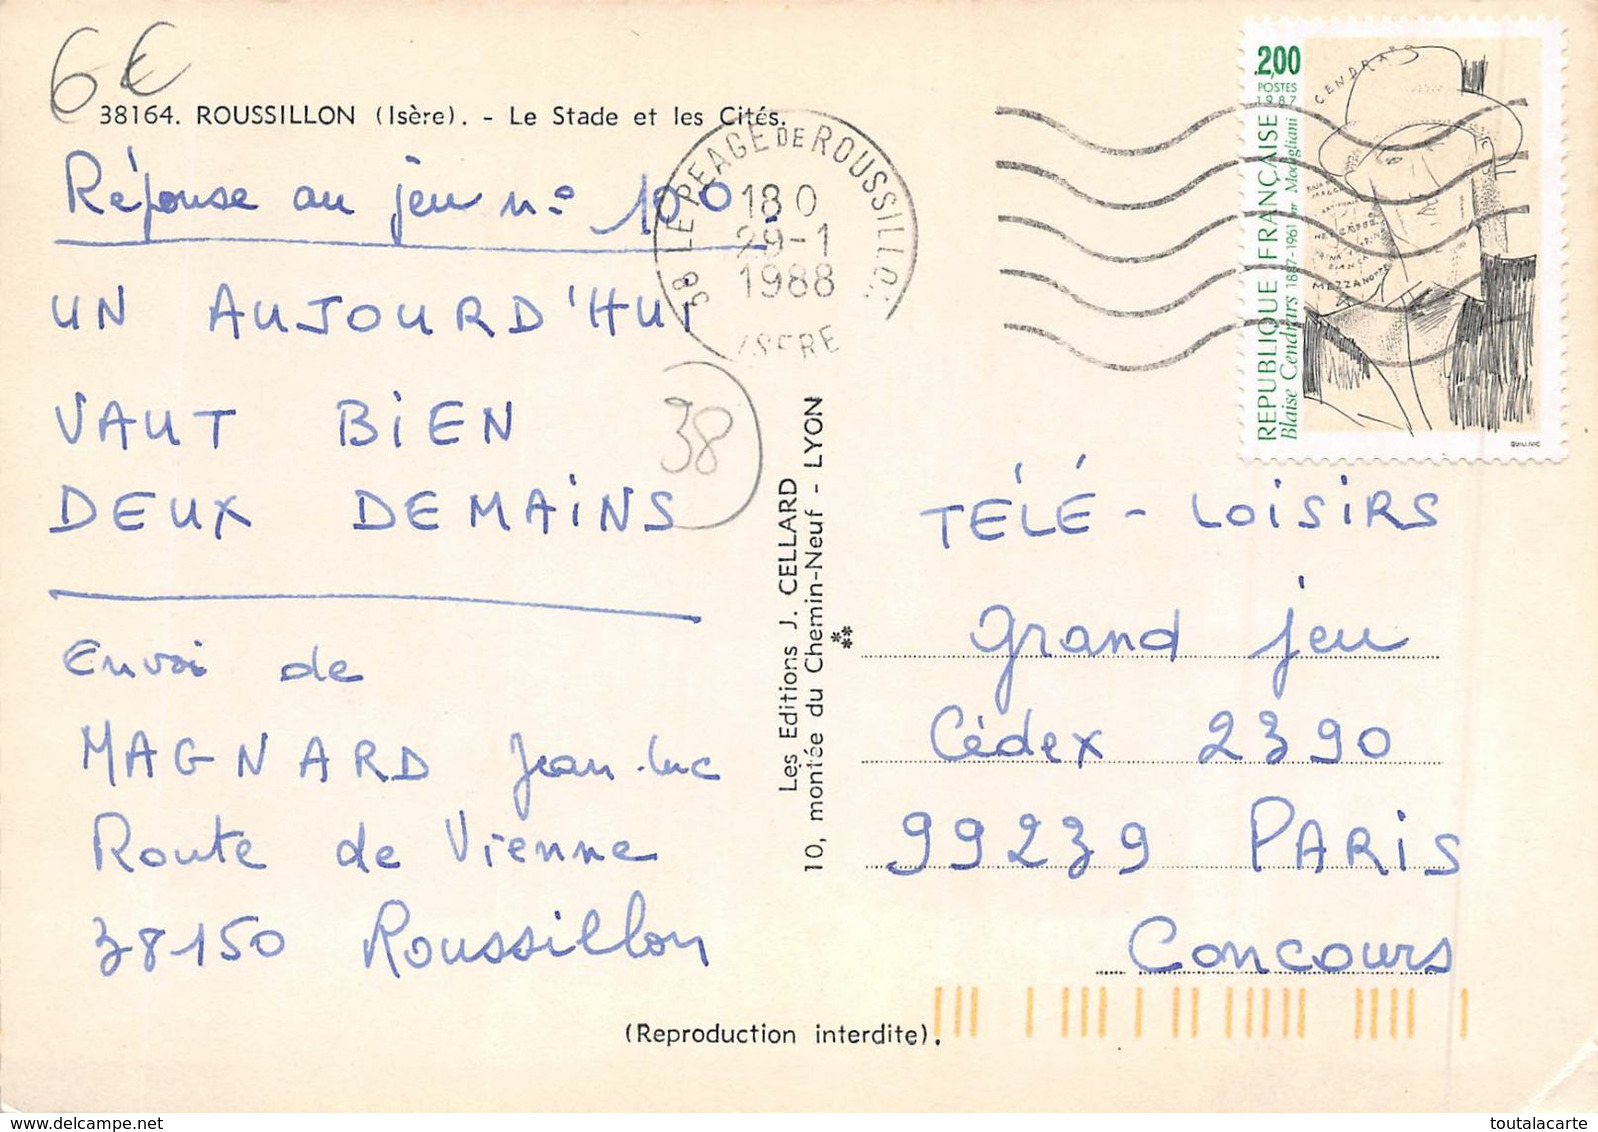 6€
38164. ROUSSILLON (Isère). - Le Stade et les Cités.
Réponse au jeu n° 100
UN AUJOURD'HUI
VAUT BIEN
DEUX DEMAINS
38
Envoi de
MAGNARD Jean-Luc
Route de Vienne
38150 Roussillon
38 LE PEAGE DE ROUSSILLON
18 0
29-1
1988
ISERE
Les Editions J. CELLARD
10, montée du Chemin-Neuf - LYON
2,00
POSTES
1987
REPUBLIQUE FRANÇAISE
Blaise Cendrars 1887-1961 par Modigliani
CENDRARS
MEZZANOTTE
QUILLIVIC
TÉLÉ - LOISIRS
grand jeu
Cédex 2390
99239 PARIS
Concours
(Reproduction interdite).
toutalacarte
www.delcampe.net